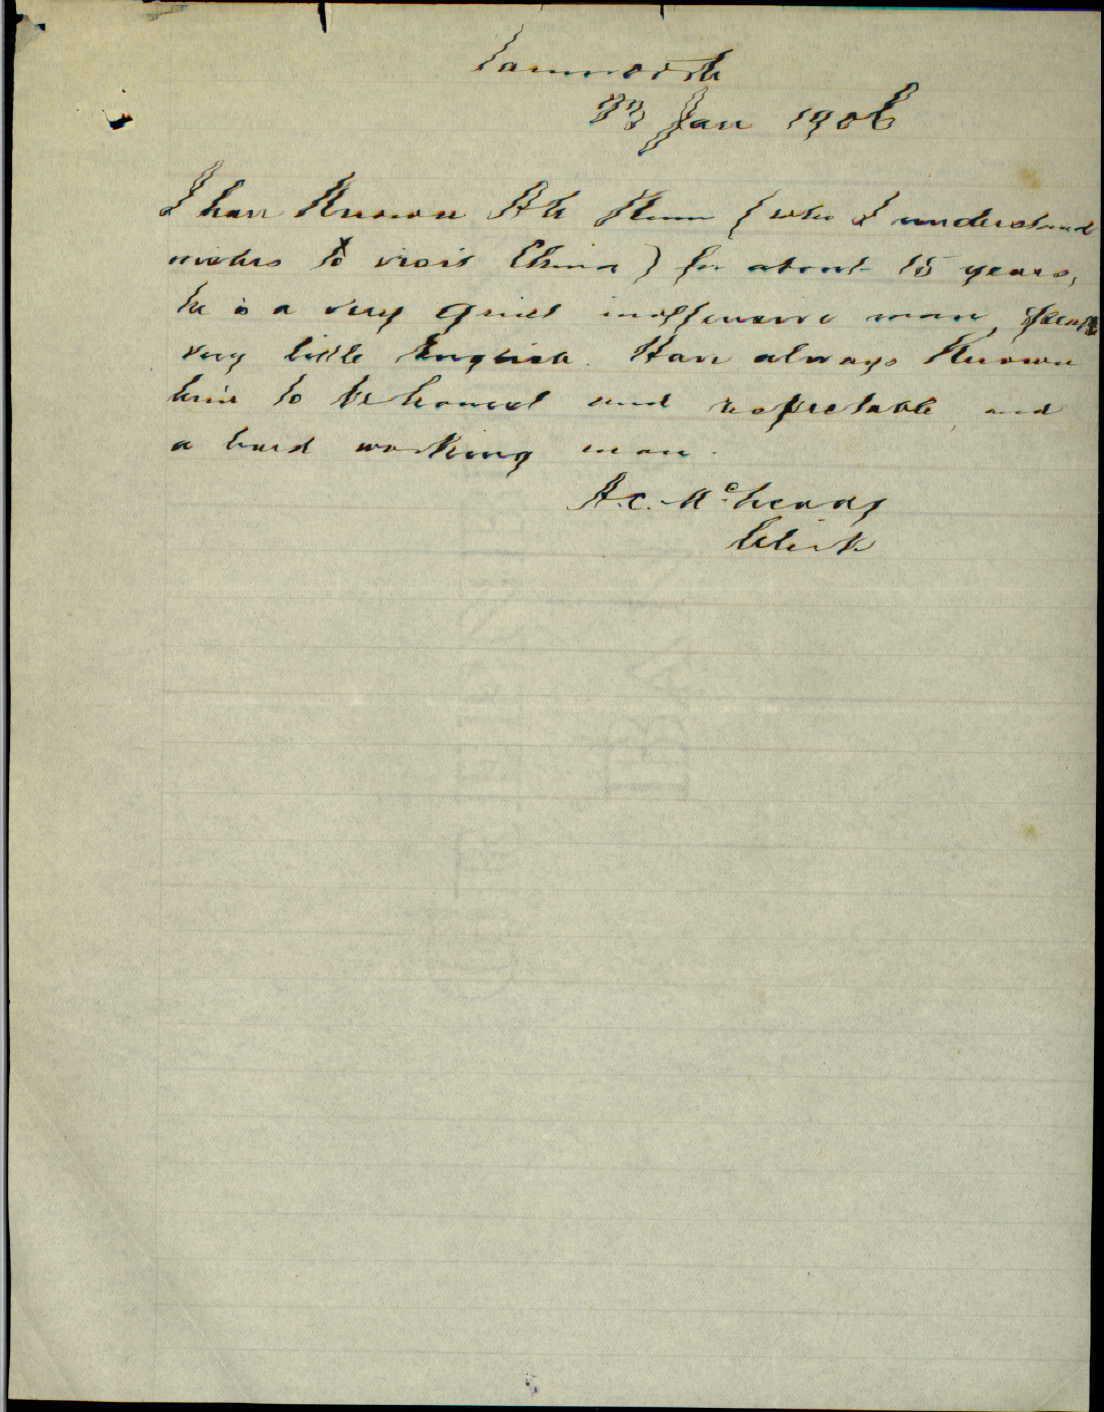 Tamworth
23 Jan 1906
I have known Ah (who I understand
wishes to visit China) for about 15 years,
he is a very quiet inoffensive man, speaks
very little English. Have always known
him to be honest and respectable and
a hard working man.
A.C. Mc
Clerk